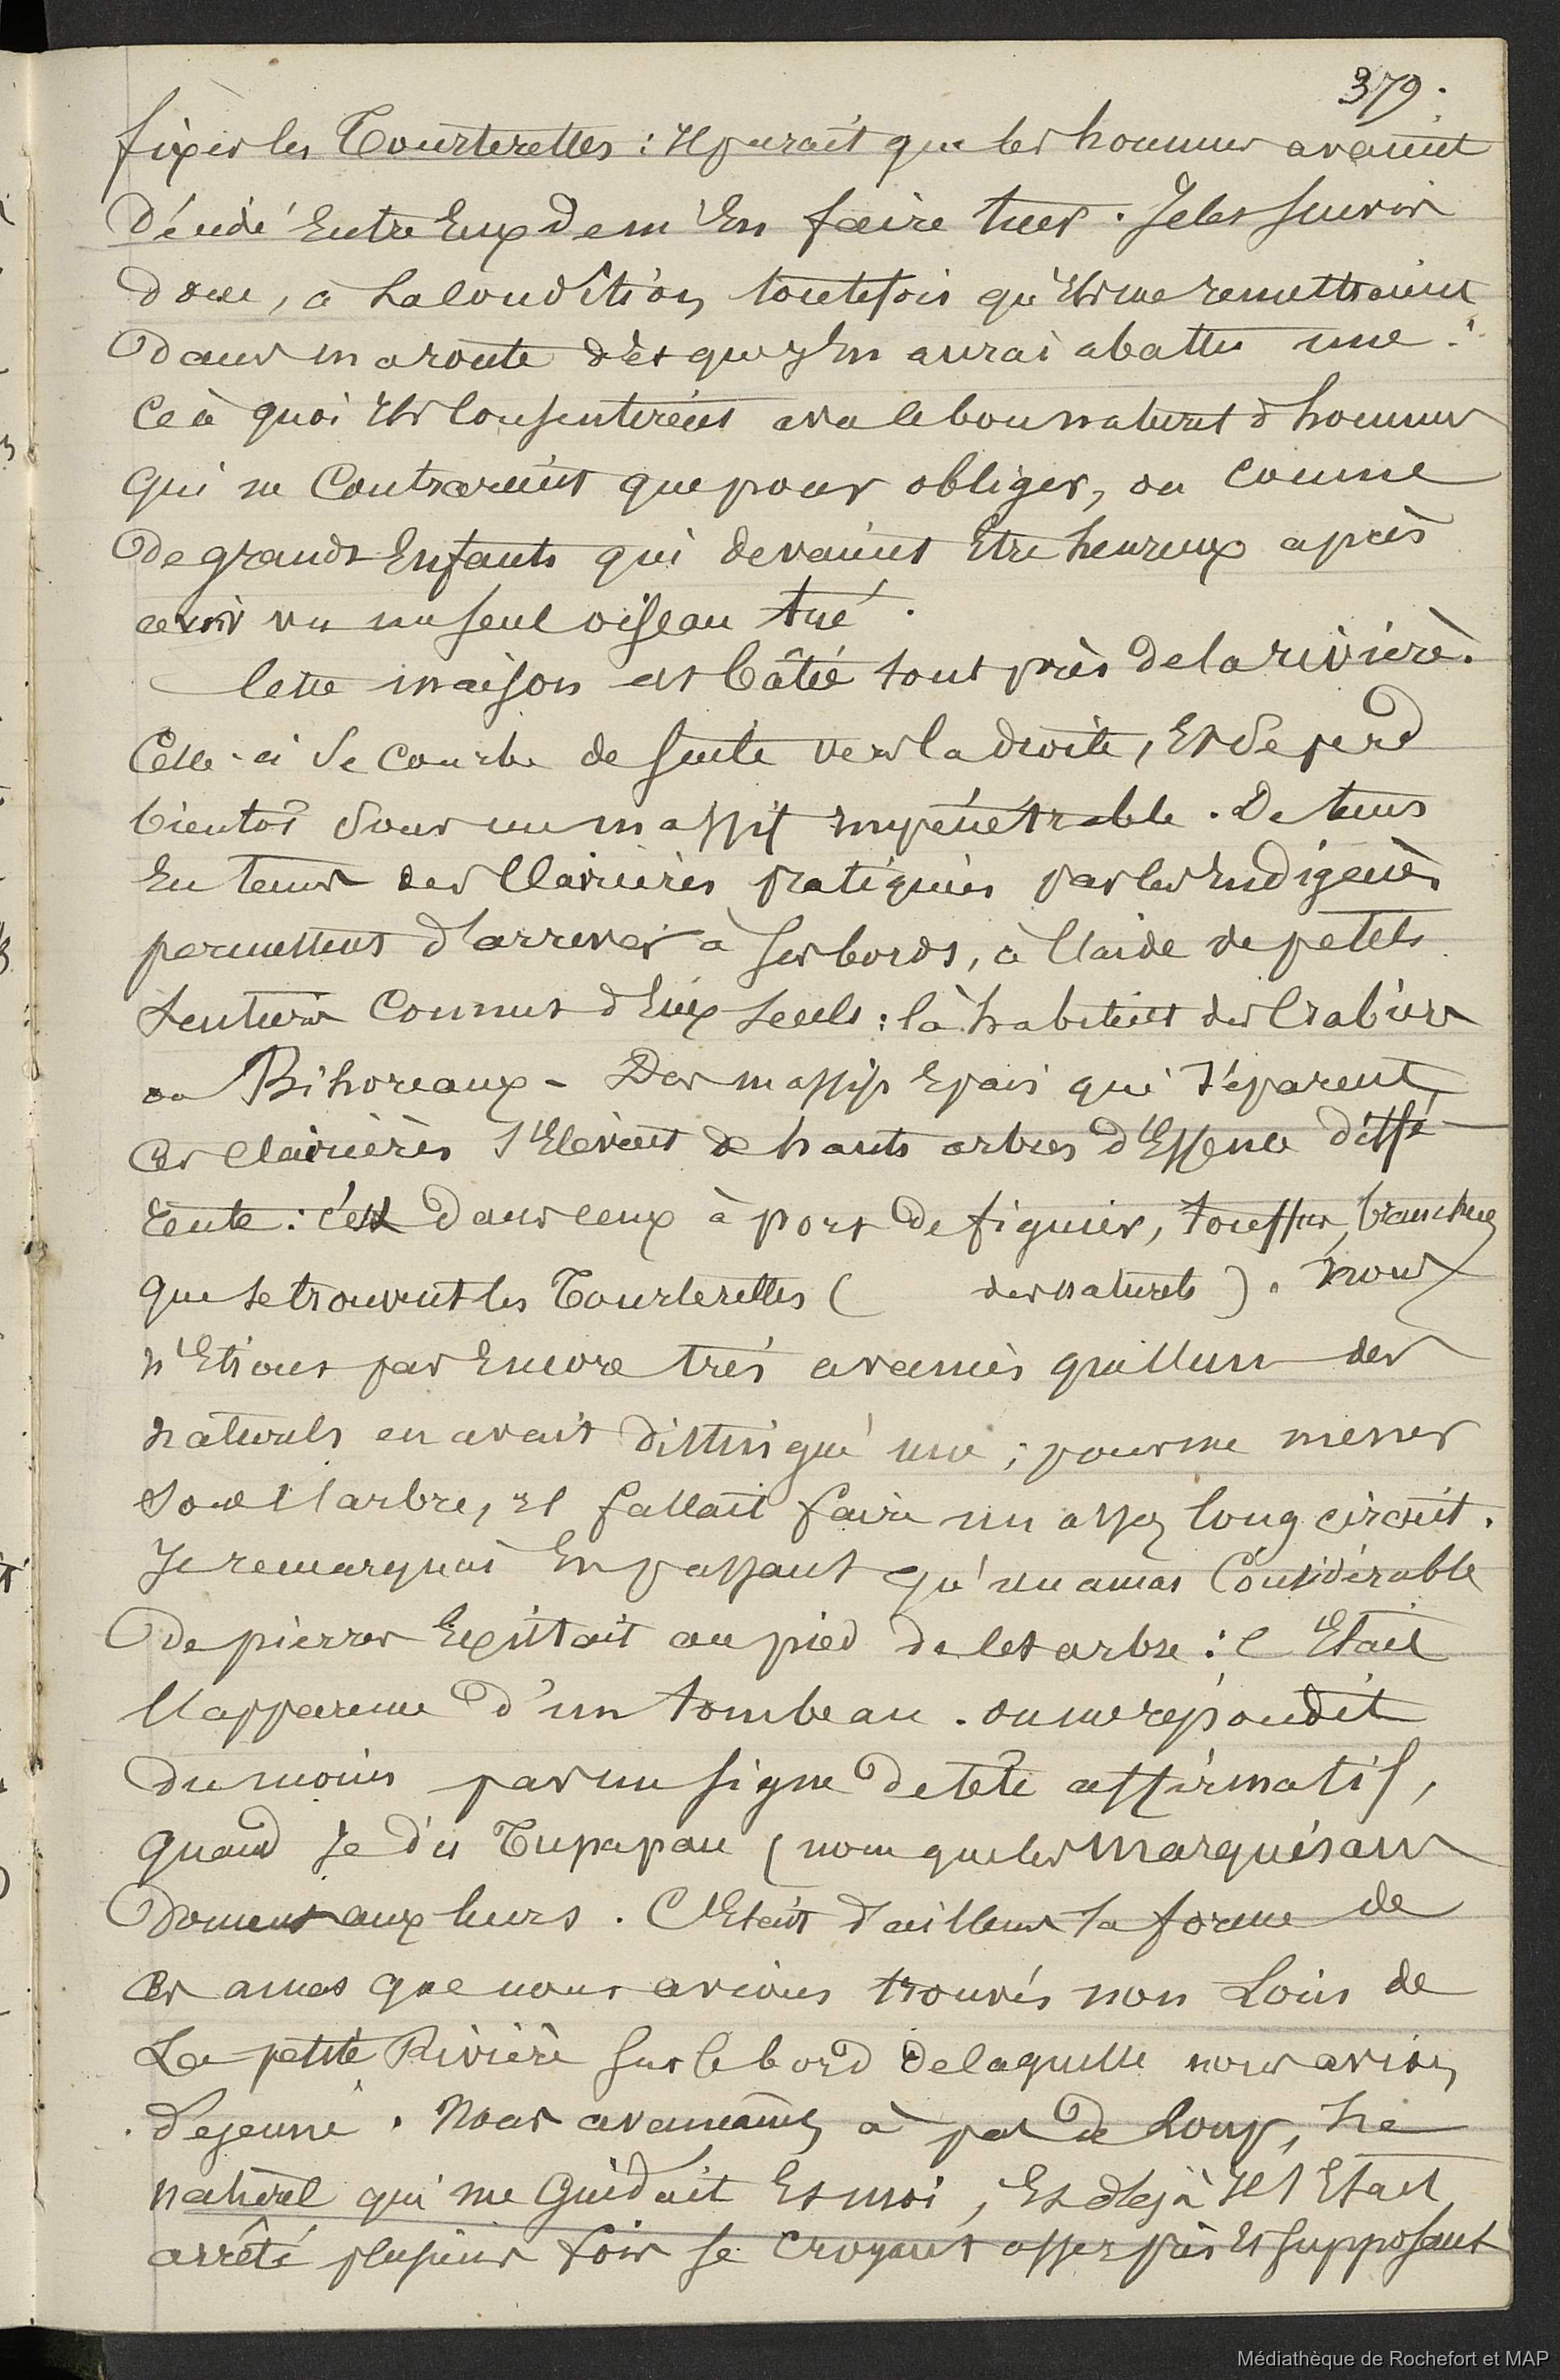 379.
fixer les Tourterelles : Il parait que les hommes avaient
décidé entre eux de m'en faire tuer. Je les suivis
donc, à la condition toutefois qu'ils me remettraient
dans ma route dès que j'en aurai abattu une :
Ce à quoi ils consentirent avec le bon naturel d'hommes
qui ne contrarient que pour obliger, ou comme
de grands Enfants qui devaient être heureux après
avoir vu un seul oiseau tué.
Cette maison est bâtie tout près de la rivière.
Celle-ci se courbe de suite vers la droite, Et se perd
bientôt sous un massif impénétrable. De temps
en temps des Clairières pratiquées par les Indigènes
permettent d'arriver à ses bords, à l'aide de petits
sentiers connus d'eux seuls : là habitent des Crabiers
ou Bihoreaux - Des massifs épais qui séparent
ces clairières s'élèvent de hauts arbres d'Essence diffé
rente : c'est dans ceux à port de figuier, touffus, branchus
que se trouvent les Tourterelles ( des naturels ). Nous
n'Etions pas Encore très avancés que l'un des
naturels en avait distingué une ; pour me mener
sous l'arbre, il fallait faire un assez long circuit.
Je remarquai En passant qu'un amas Considérable
de pierres Existait au pied de cet arbre : c'Etait
l'apparence d'un tombeau. on me répondit
du moins par un signe de tête affirmatif,
quand je dis Tupapau (nom que les Marquésans
donnent aux leurs. C'Etait d'ailleurs la forme de
ces amas que nous avions trouvés non Loin de
La petite Rivière sur le bord de laquelle nous avions
déjeuné. Nous avancâmes à pas de Loup, le
naturel qui me Guidait Et moi, Et déjà Il s'Etait
arrêté plusieurs fois se croyant assez près Et supposant
Médiathèque de Rochefort et MAP